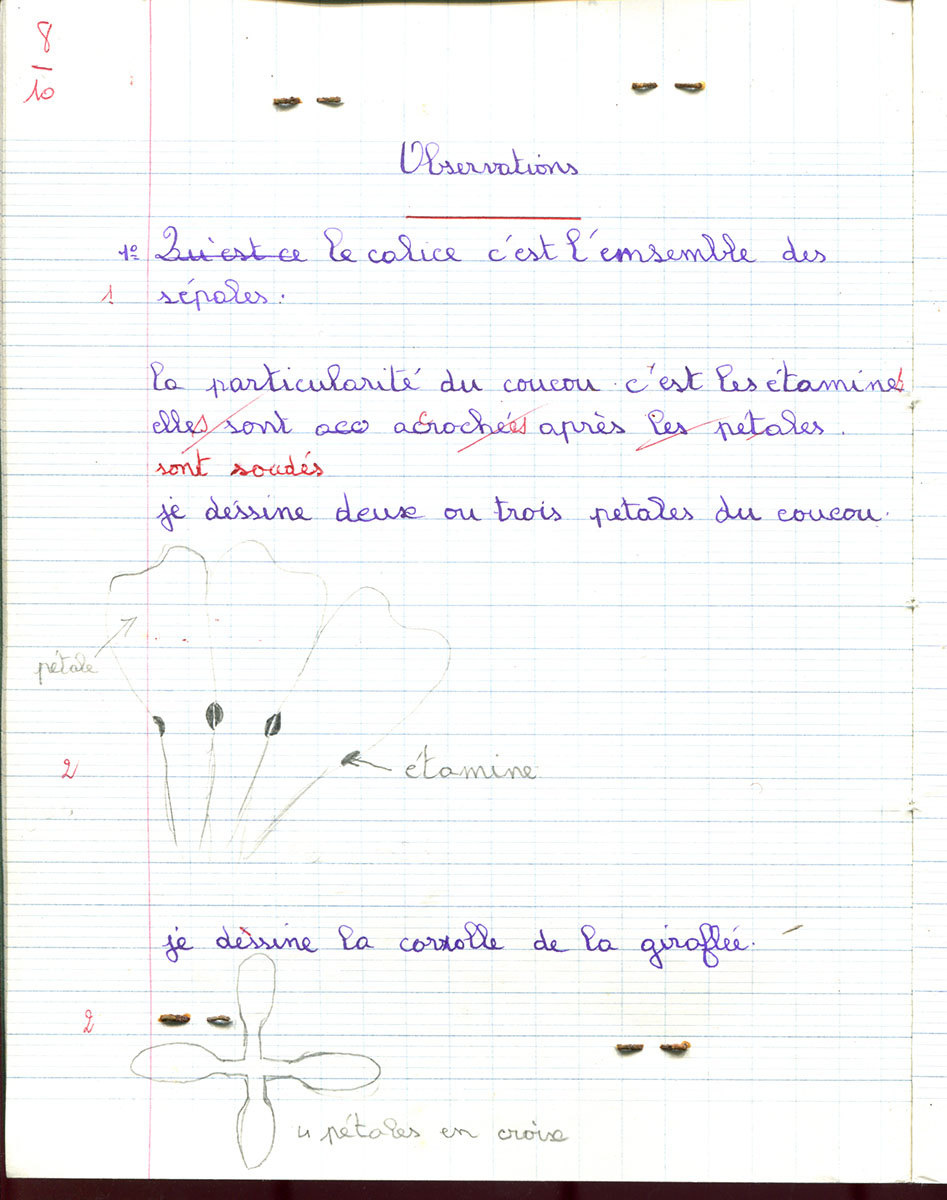 8
10
Observations
1º Qu'est ce le calice c'est l'emsemble des
1
sépales.
la particularité du coucou c'est les étamines
elles sont aco acrochées après les pétales.
sont soudés
je dessine deux ou trois petales du coucou.
pétale
2
étamine
je dessine la corrolle de la giraflée.
2
4 pétales en croix